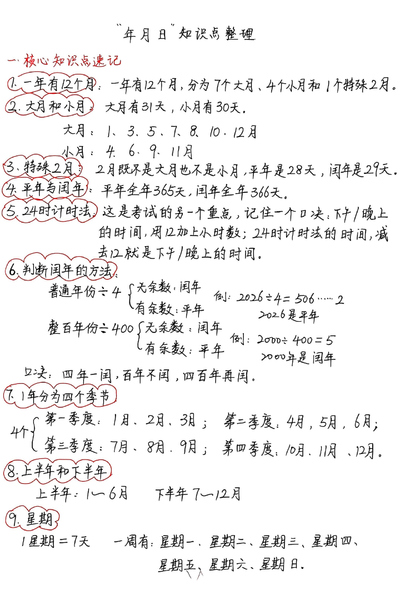 "年月日"知识点整理
一.核心知识点速记
1.一年有12个月:一年有12个月,分为7个大月、4个小月和1个特殊2月。
2.大月和小月:大月有31天,小月有30天。
大月:1、3、5、7、8、10、12月
小月:4、6、9、11月
3.特殊2月:2月既不是大月也不是小月,平年是28天,闰年是29天。
4.平年与闰年:平年全年365天,闰年全年366天。
5.24时计时法:这是考试的另一个重点,记住一个口决:下午/晚上
的时间,用12加上小时数;24时计时法的时间,减
去12就是下午/晚上的时间。
6.判断闰年的方法:
普通年份÷4 无余数:闰年 例:2026÷4=506……2
有余数:平年 2026是平年
整百年份÷400 无余数:闰年 例:2000÷400=5
有余数:平年 2000年是闰年
口决:四年一闰,百年不闰,四百年再闰。
7.1年分为四个季节
4个 第一季度:1月、2月、3月; 第二季度:4月,5月,6月;
第三季度:7月、8月、9月; 第四季度:10月、11月、12月。
8.上半年和下半年
上半年:1~6月 下半年7~12月
9.星期
1星期=7天 一周有:星期一、星期二、星期三、星期四、
星期五、星期六、星期日.